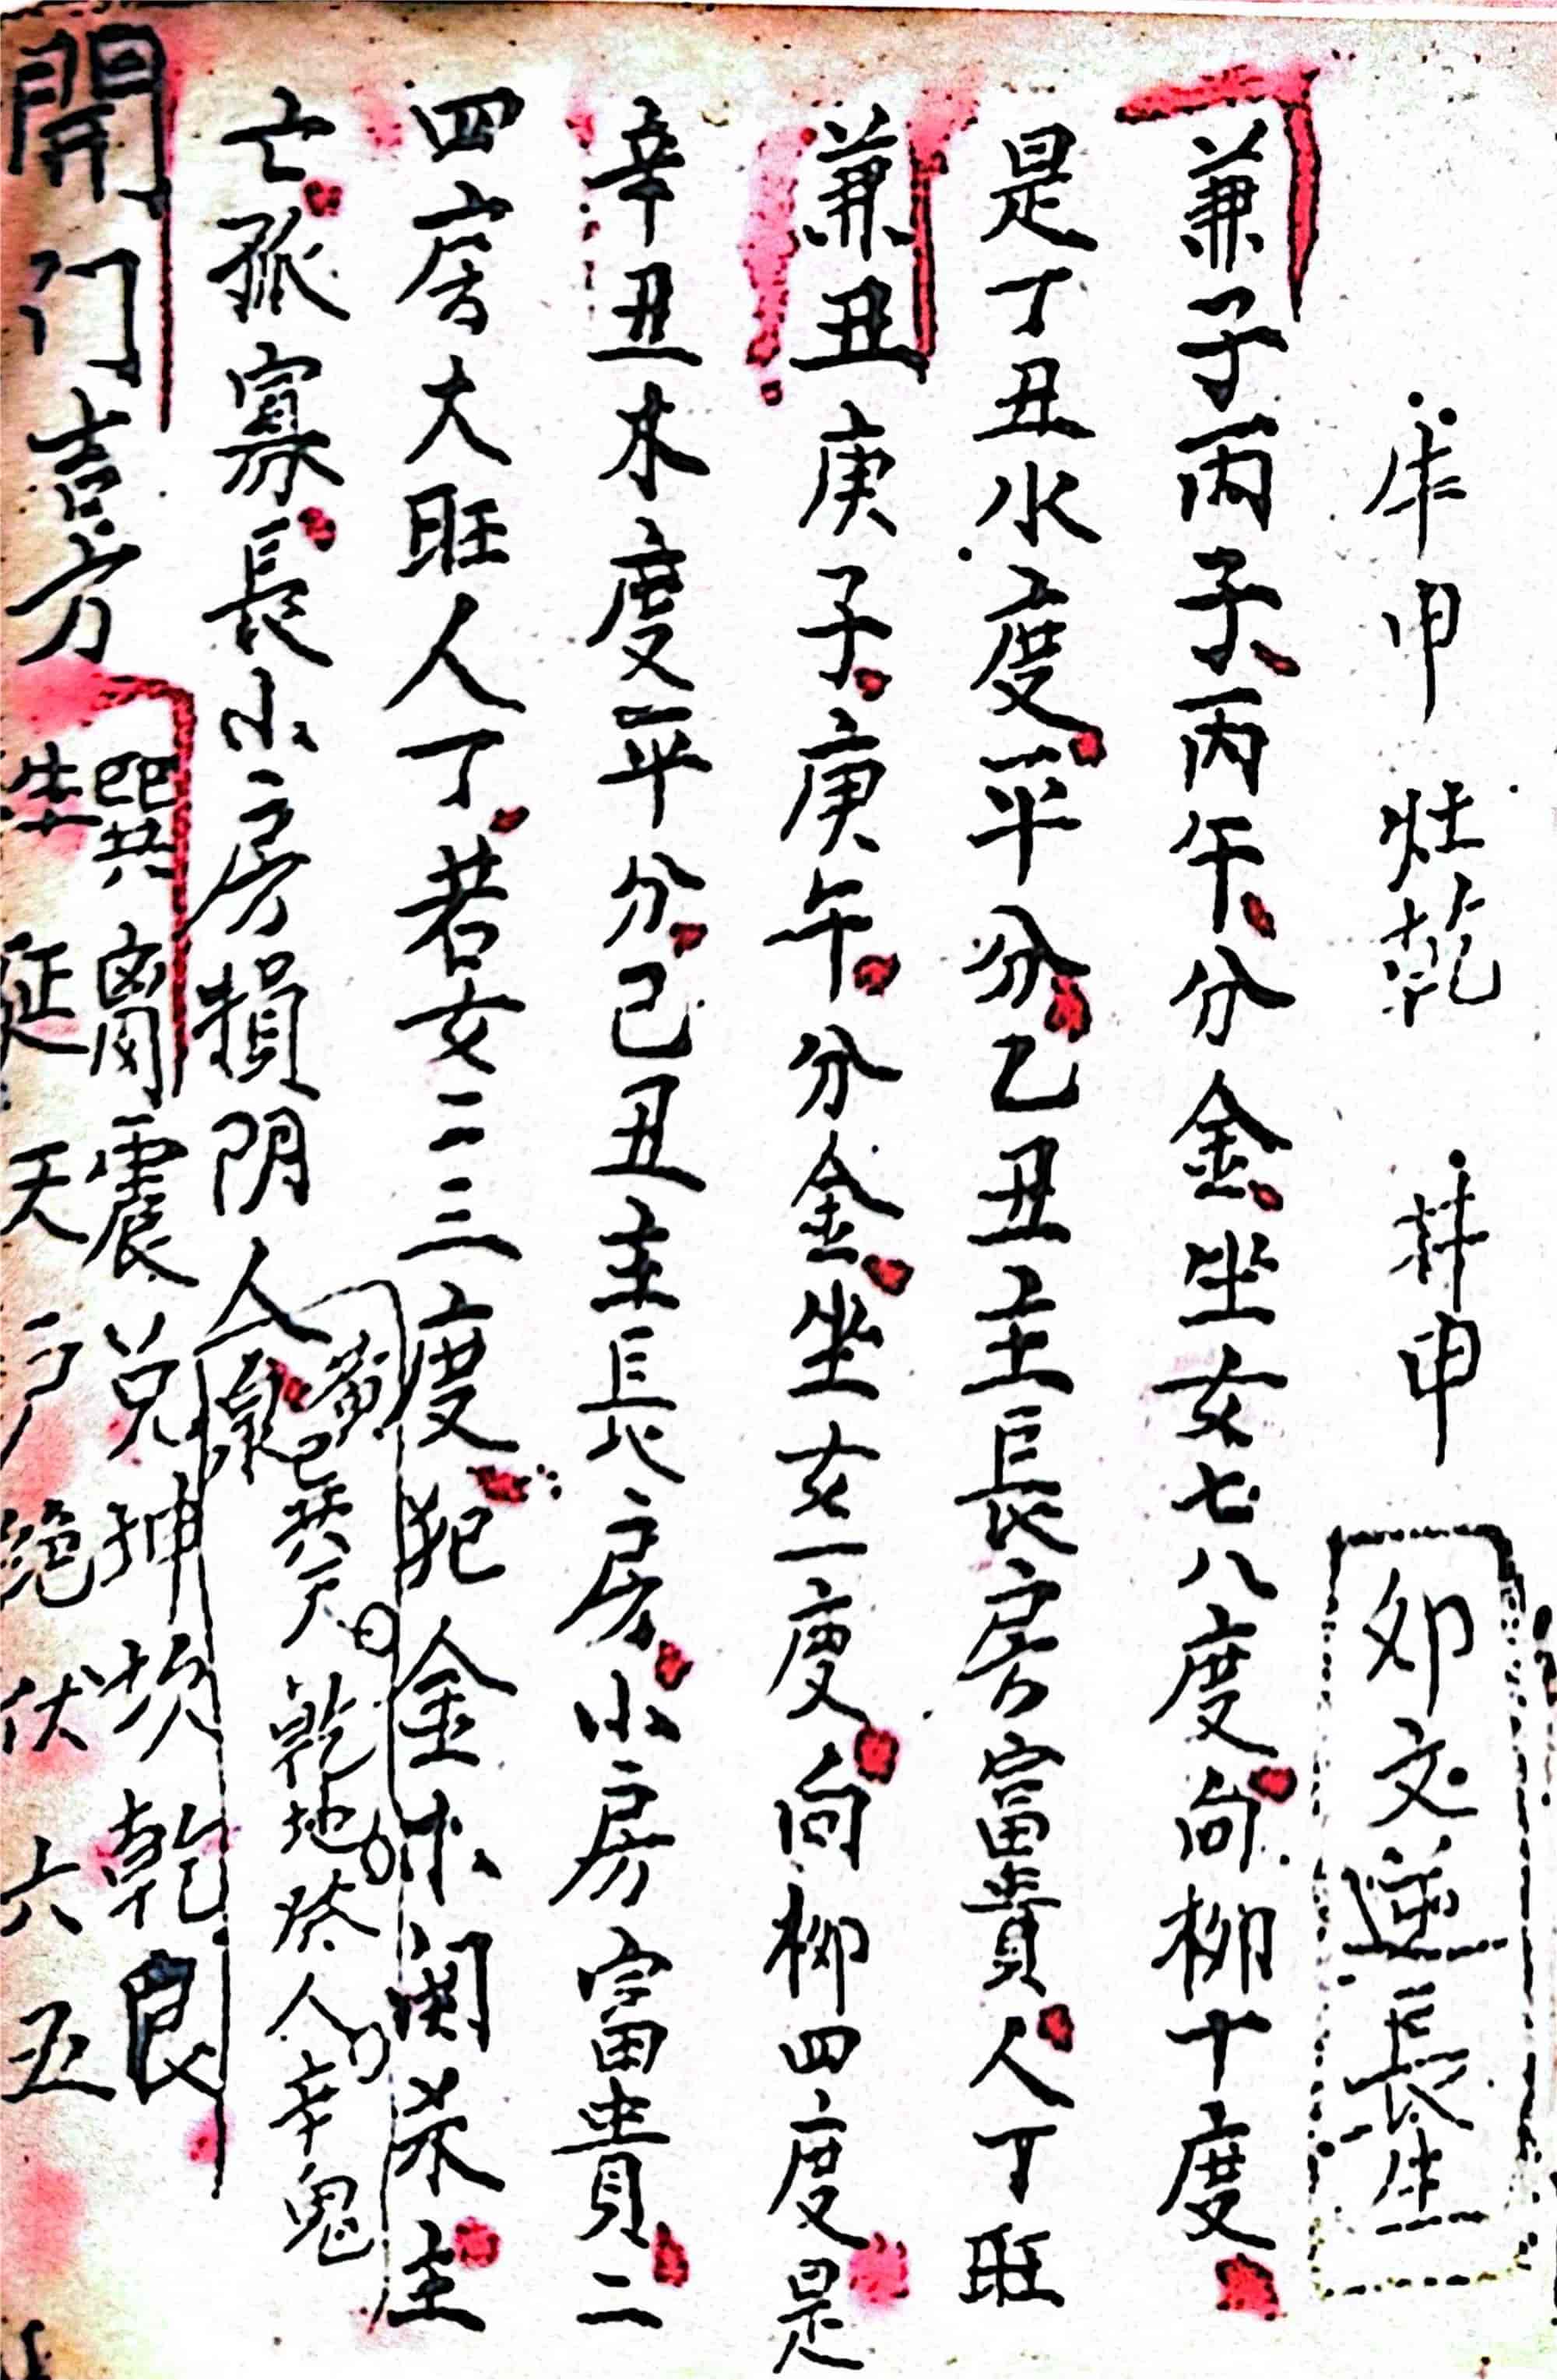 牛申 灶乾 井申 卯文逆長生
兼子丙子丙午分金坐女七八度向柳十度
是丁丑水度平分乙丑主長房富貴人丁旺
兼丑庚子庚午分金坐女一度向柳四度是
辛丑木度平分己丑主長房小房富貴二
四房大旺人丁若女二三度犯金木関杀主
亡孤寡長小房損阴人
黄泉巴巽天乾地癸人辛鬼
開门吉方
巽离震兑坤坎乾艮
生延天绝伏六五